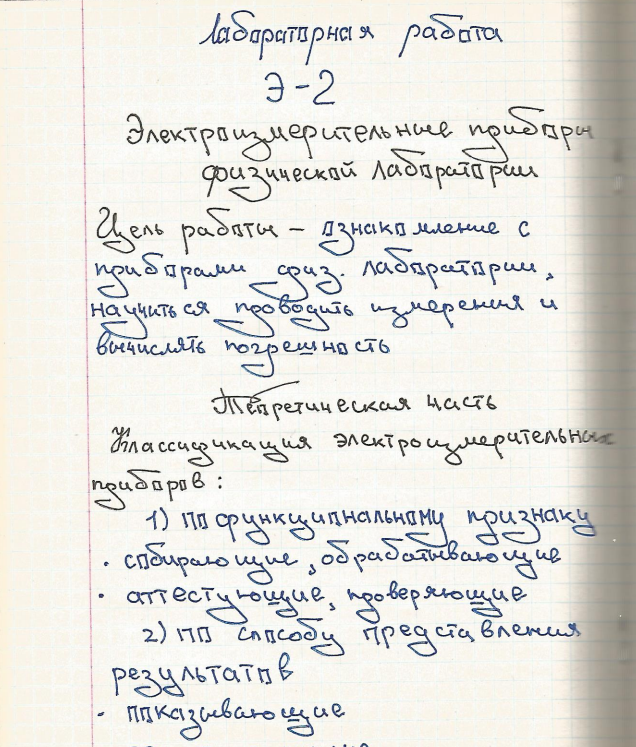 Лабораторная работа
Э-2
Электроизмерительные приборы
физической лаборатории
Цель работы - ознакомление с
приборами физ. лаборатории,
научиться проводить измерения и
вычислять погрешность
Теоретическая часть
Классификация электроизмерительных
приборов:
1) по функциональному признаку
· собирающие, обрабатывающие
· аттестующие, проверяющие
2) по способу представления
результатов
· показывающие